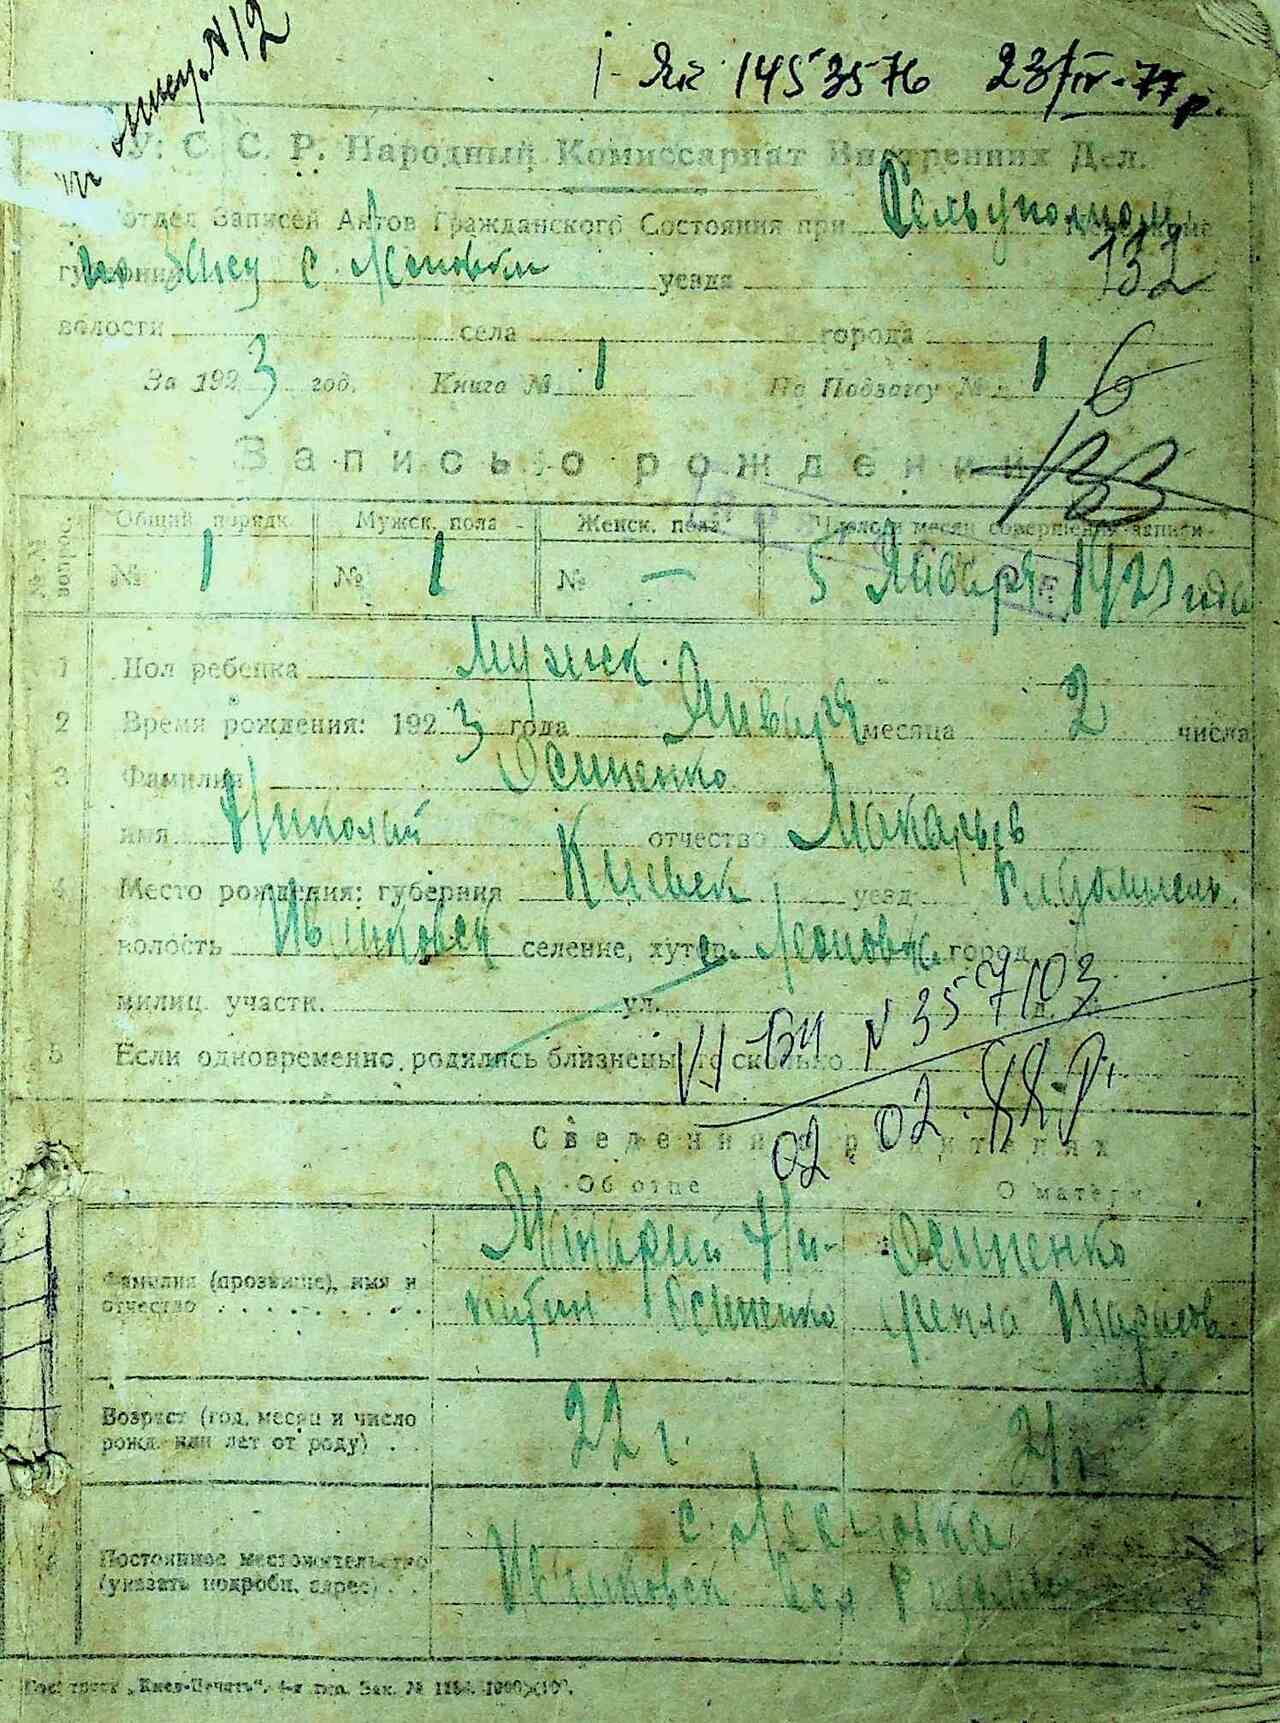 N12
I-ЯК 1453576 23/IV-77 р.
У. С. С. Р. Народный Комиссариат Внутренних Дел.
отдел Записей Актов Гражданского Состояния при Сельуполном
132
губернии по ЗАГСу с. Леоновки уезда
волости села города
За 1923 год. Книга № 1 По Подзагсу № 1
6
Запись о рождении
133
№№ вопрос. Общий порядк. Мужск. пола Женск. пола Число и месяц совершения записи
№ 1 № 1 № — 5 Января 1923 года
1 Пол ребенка Мужск.
2 Время рождения: 1923 года Января месяца 2 числа
3 Фамилия Осипенко
имя Николай отчество Макарьев
4 Место рождения: губерния Киевск уезд Радомысль.
волость Иванковск селение, хутор с. Леоновка город
милиц. участк. ул. д. №
VI-БК N 357103
5 Если одновременно родились близнецы, то сколько
02 02.88.р.
Сведения о родителях
Об отце О матери
Фамилия (прозвище), имя и отчество Макарий Никитин Осипенко Осипенко Фекла Тарасов.
Возраст (год, месяц и число рожд. или лет от роду) 22 г. 21 г.
Постоянное местожительство (указать подробн. адрес) с. Леоновка
Иванковск вол
Гос. трест „Киев-Печать“. 4-я тип. Зак. №